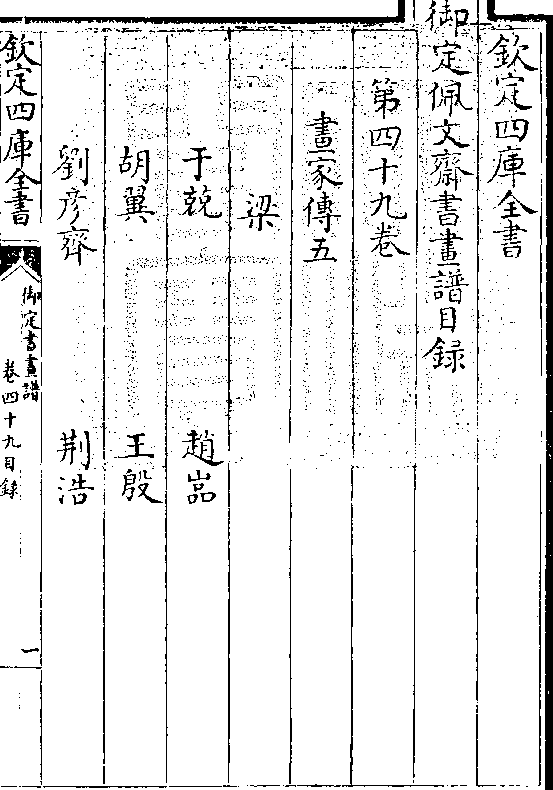 欽定四庫全書
御定佩文齋書畫譜目録
第四十九卷
畫家傳五
梁
于兢 趙嵓
胡翼 王殷
劉彦齊 荆浩
欽定四庫全書
御定書畫譜
卷四十九目録
一